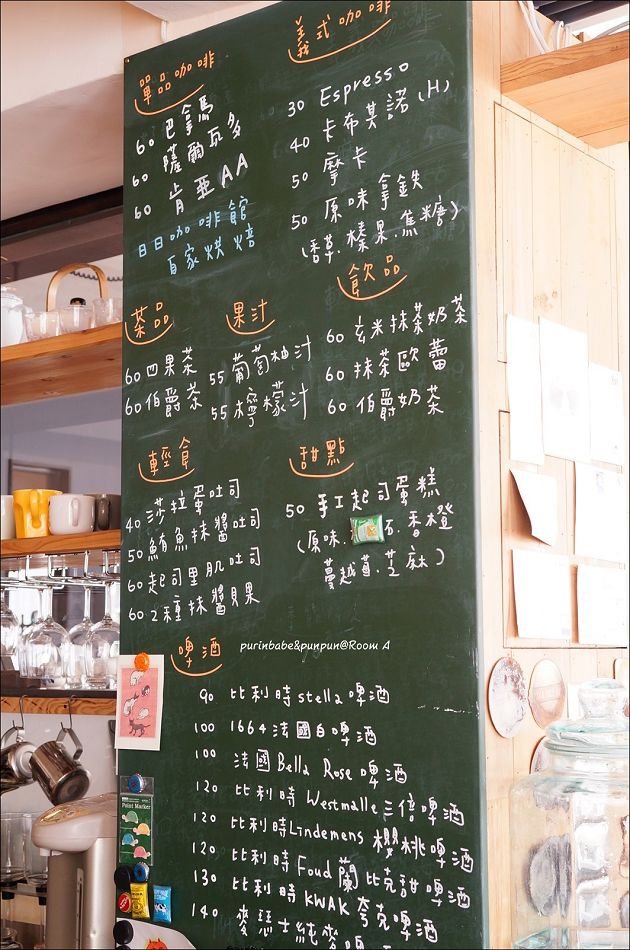 單品咖啡
60 巴拿馬
60 薩爾瓦多
60 肯亞AA
日日咖啡館
自家烘焙
義式咖啡
30 Espresso
40 卡布其諾(H)
50 摩卡
50 原味拿鉄
(香草.榛果.焦糖)
茶品
60 四果茶
60 伯爵茶
果汁
55 葡萄柚汁
55 檸檬汁
飲品
60 玄米抹茶奶茶
60 抹茶歐蕾
60 伯爵奶茶
輕食
40 莎拉蛋吐司
50 鮪魚抹醬吐司
60 起司里肌吐司
60 2種抹醬貝果
甜點
50 手工起司蛋糕
(原味. 石.香橙
蔓越莓.芝麻)
purinbabe&punpun@Room A
啤酒
90 比利時stella啤酒
100 1664法國白啤酒
100 法國Bella Rose啤酒
120 比利時Westmalle三倍啤酒
120 比利時Lindemens櫻桃啤酒
120 比利時Foud蘭比克甜啤酒
130 比利時KWAK夸克啤酒
140 麥瑟士純麥啤
Point Marker